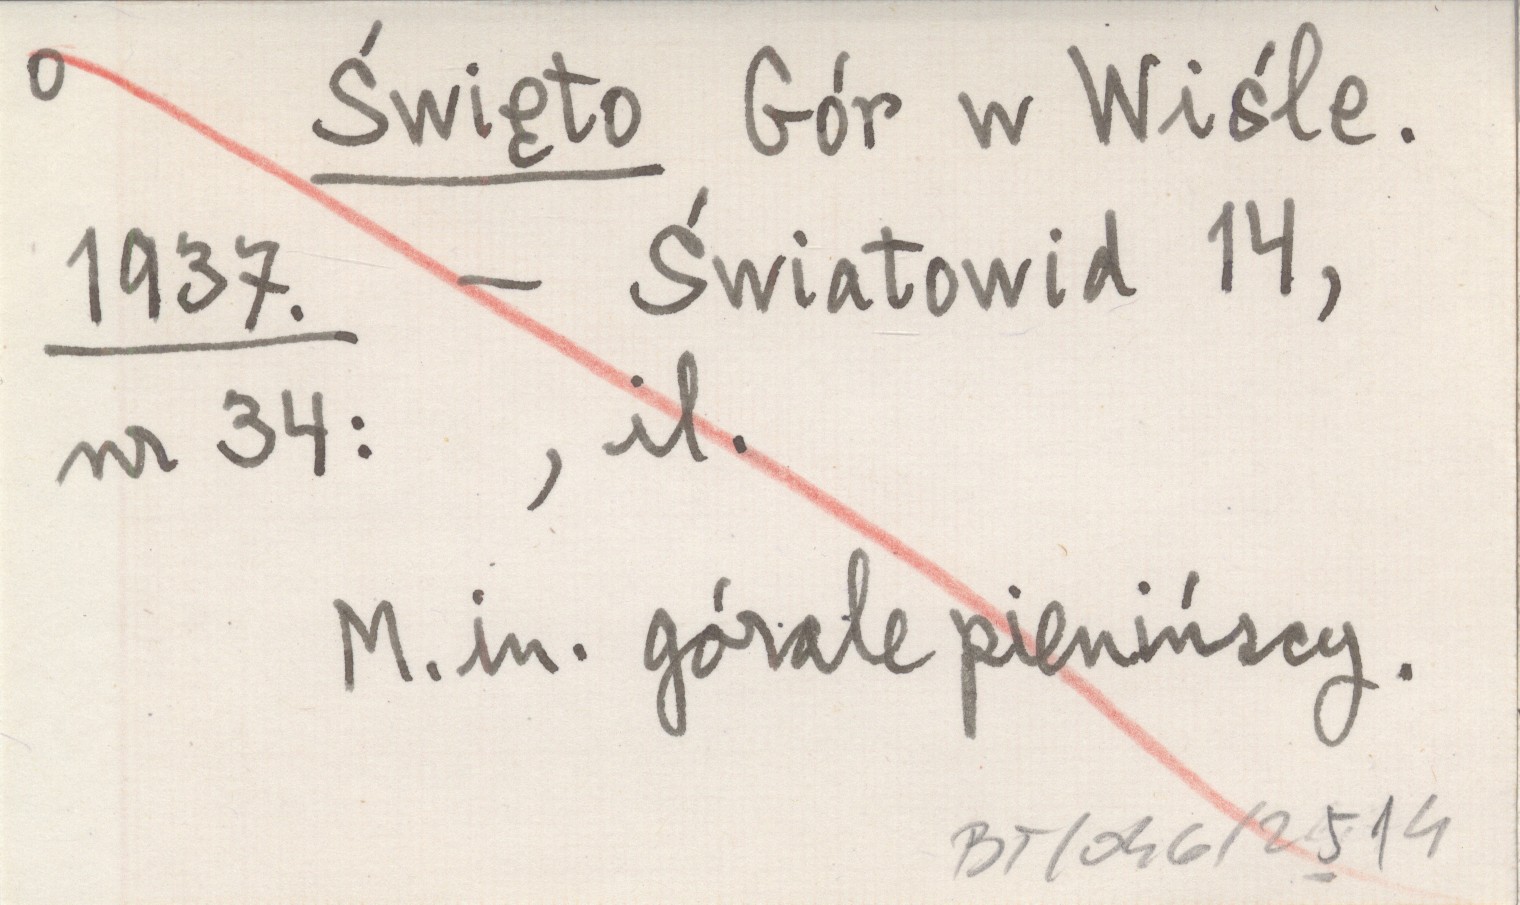 o Święto Gór w Wiśle.
1937. – Światowid 14,
nr 34: , il.
M. in. górale pienińscy.
BT/046/2514